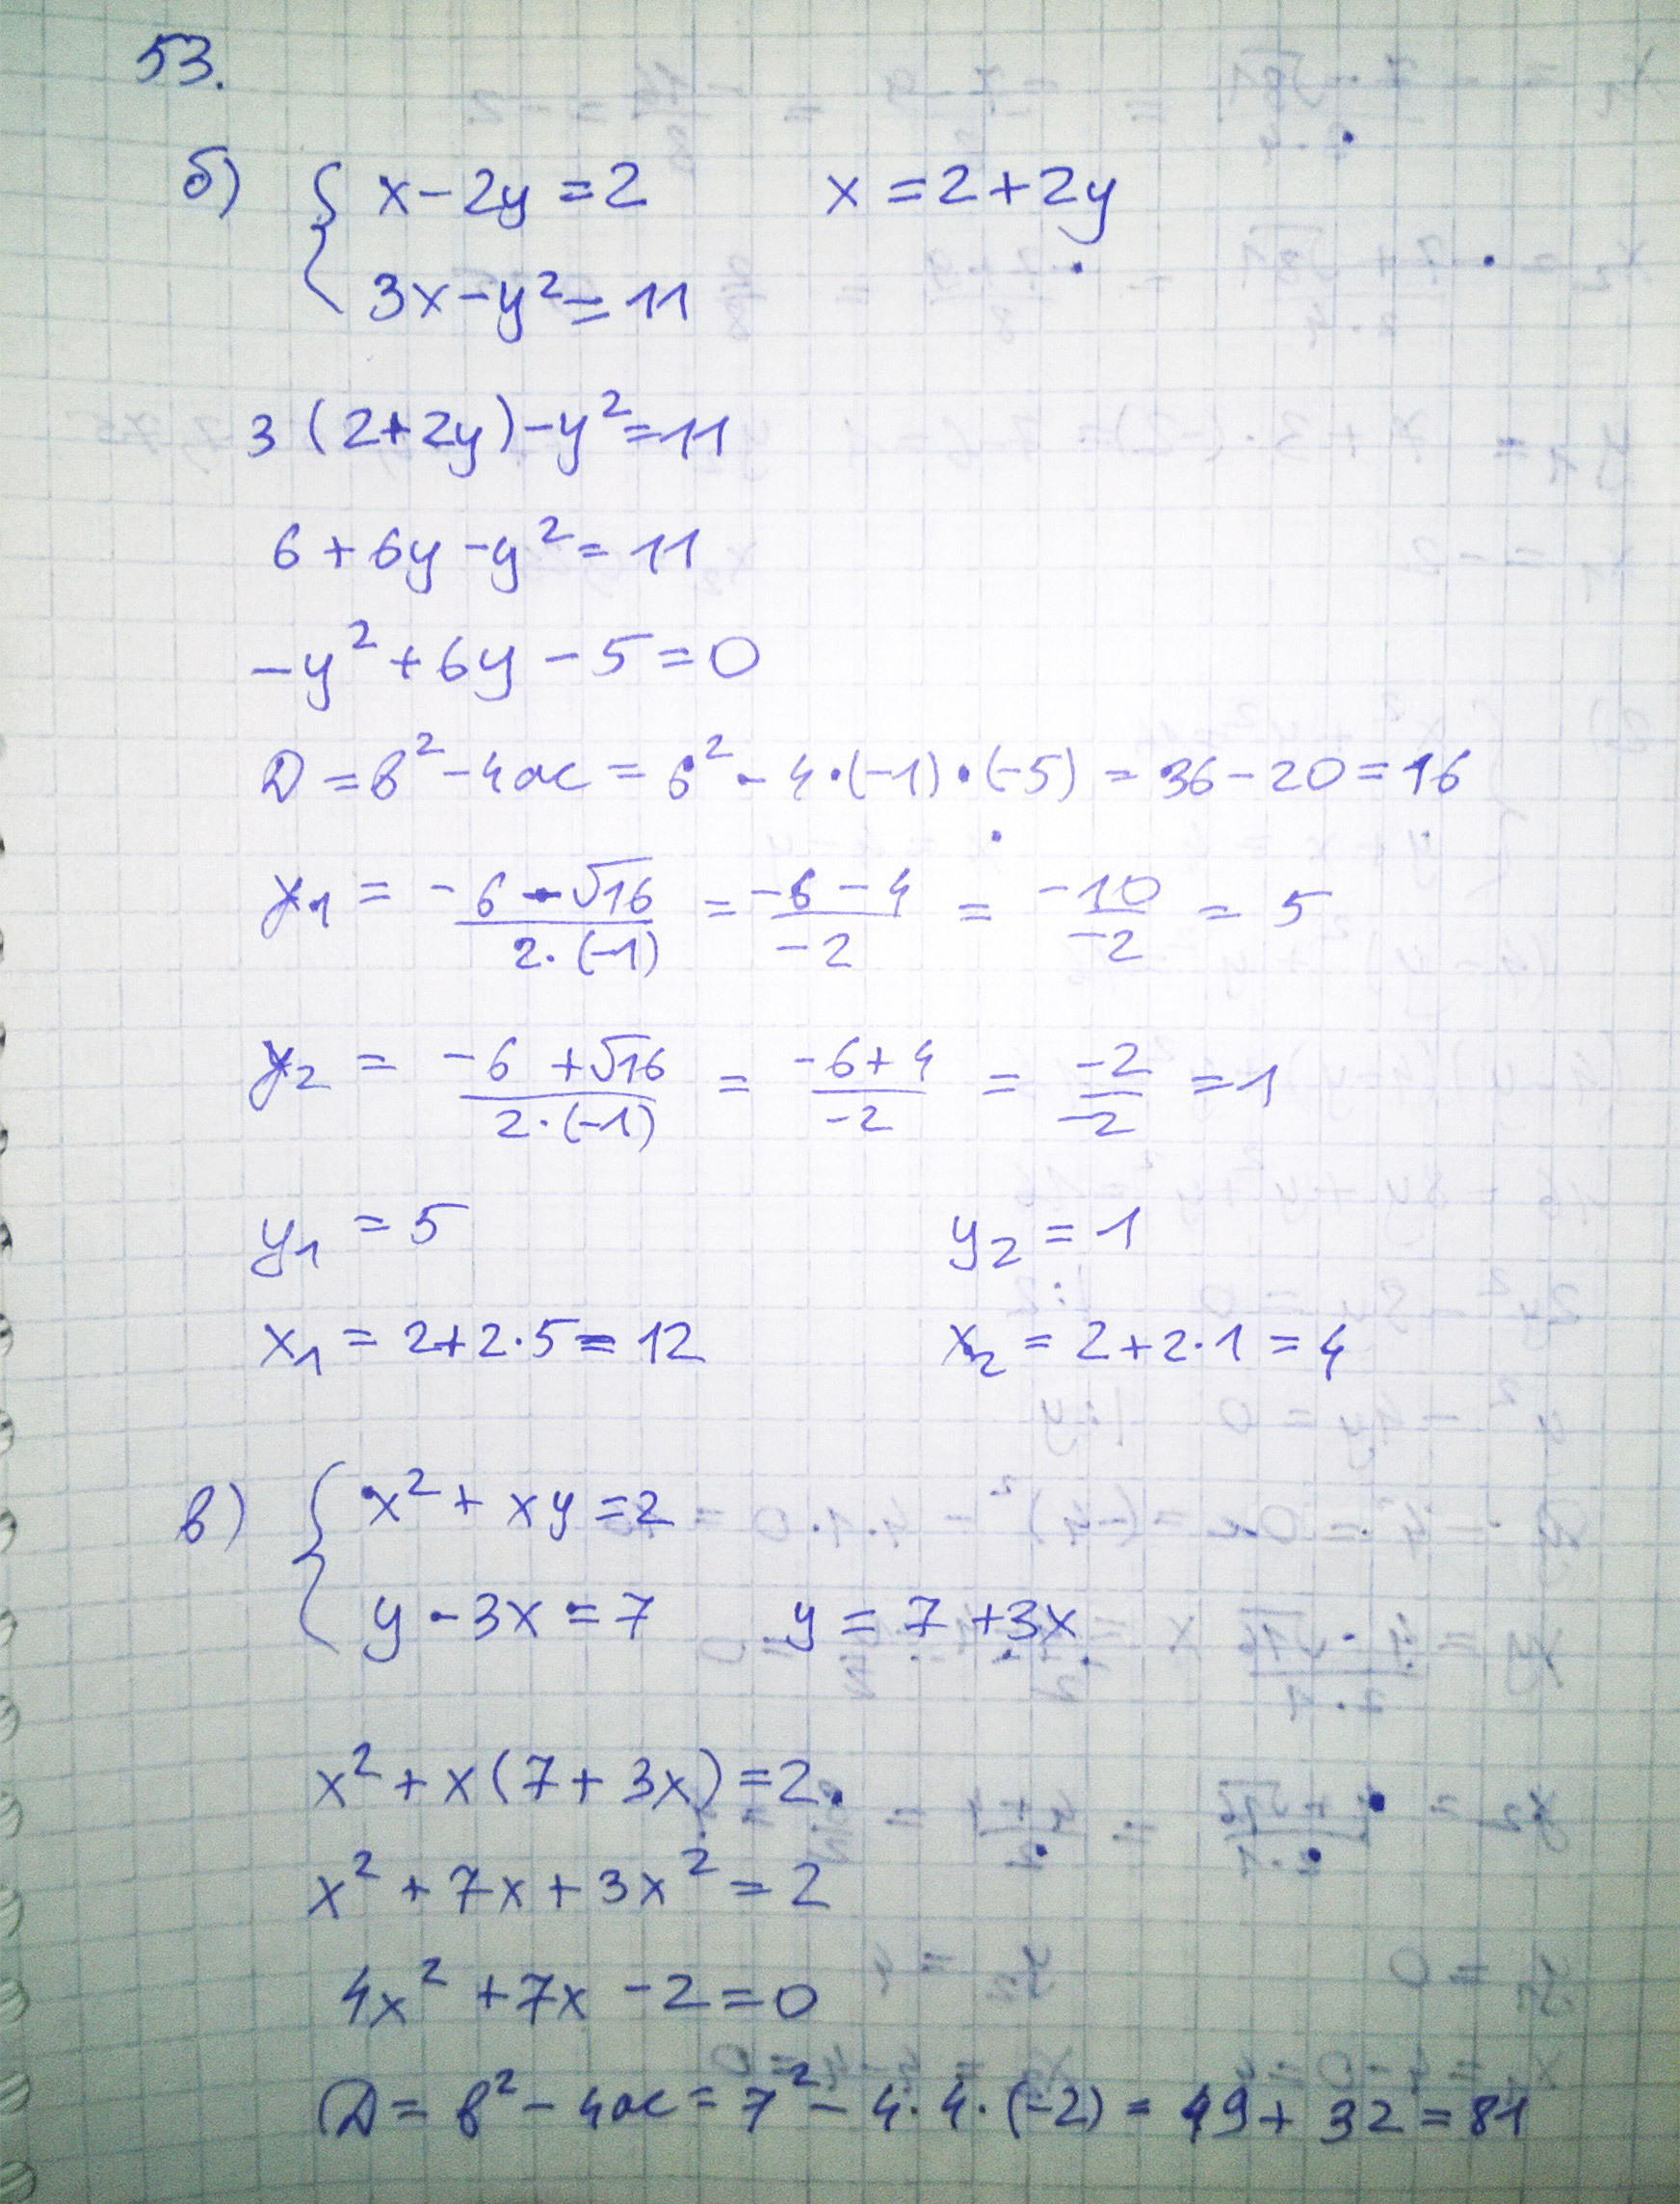 53.
б) { x - 2y = 2 x = 2 + 2y
3x - y² = 11
3 (2 + 2y) - y² = 11
6 + 6y - y² = 11
-y² + 6y - 5 = 0
D = b² - 4ac = 6² - 4·(-1)·(-5) = 36 - 20 = 16
y₁ = (-6 - √16)/(2·(-1)) = (-6 - 4)/(-2) = (-10)/(-2) = 5
y₂ = (-6 + √16)/(2·(-1)) = (-6 + 4)/(-2) = (-2)/(-2) = 1
y₁ = 5 y₂ = 1
x₁ = 2 + 2·5 = 12 x₂ = 2 + 2·1 = 4
в) { x² + xy = 2
y - 3x = 7 y = 7 + 3x
x² + x(7 + 3x) = 2
x² + 7x + 3x² = 2
4x² + 7x - 2 = 0
D = b² - 4ac = 7² - 4·4·(-2) = 49 + 32 = 81